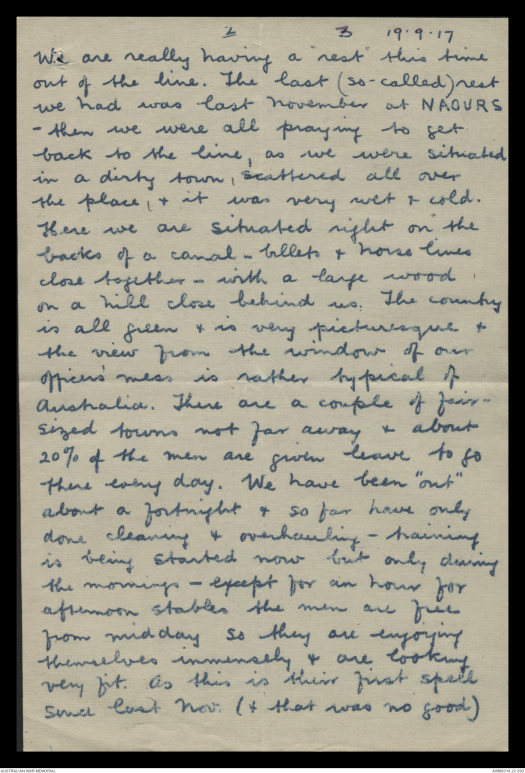 3 19·9·17
We are really having a "rest" this time
out of the line. The last (so-called) rest
we had was last November at NAOURS
- then we were all praying to get
back to the line, as we were situated
in a dirty town, scattered all over
the place, + it was very wet + cold.
Here we are situated right on the
backs of a canal - billets + horse lines
close together - with a large wood
on a hill close behind us. The country
is all green + is very picturesque +
the view from the window of our
officers' mess is rather typical of
Australia. There are a couple of fair-
sized towns not far away + about
20% of the men are given leave to go
there every day. We have been "out"
about a fortnight + so far have only
done cleaning + overhauling - training
is being started now but only during
the mornings - except for an hour for
afternoon stables the men are free
from midday so they are enjoying
themselves immensely + are looking
very fit. As this is their first spell
since last Nov. (+ that was no good)
AUSTRALIAN WAR MEMORIAL